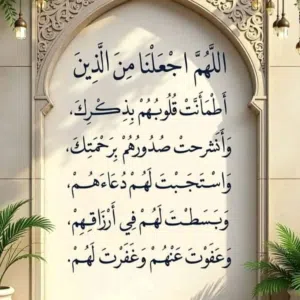 اللَّهُمَّ اجْعَلْنَا مِنَ الَّذِينَ
أَطْمَأَنَّتْ قُلُوبُهُمْ بِذِكْرِكَ،
وَأَنْشَرَحَتْ صُدُورُهُمْ بِرَحْمَتِكَ،
وَاسْتَجَبْتَ لَهُمْ دُعَاءَهُمْ،
وَبَسَطْتَ لَهُمْ فِي أَرْزَاقِهِمْ
وَعَفَوْتَ عَنْهُمْ وَغَفَرْتَ لَهُمْ.